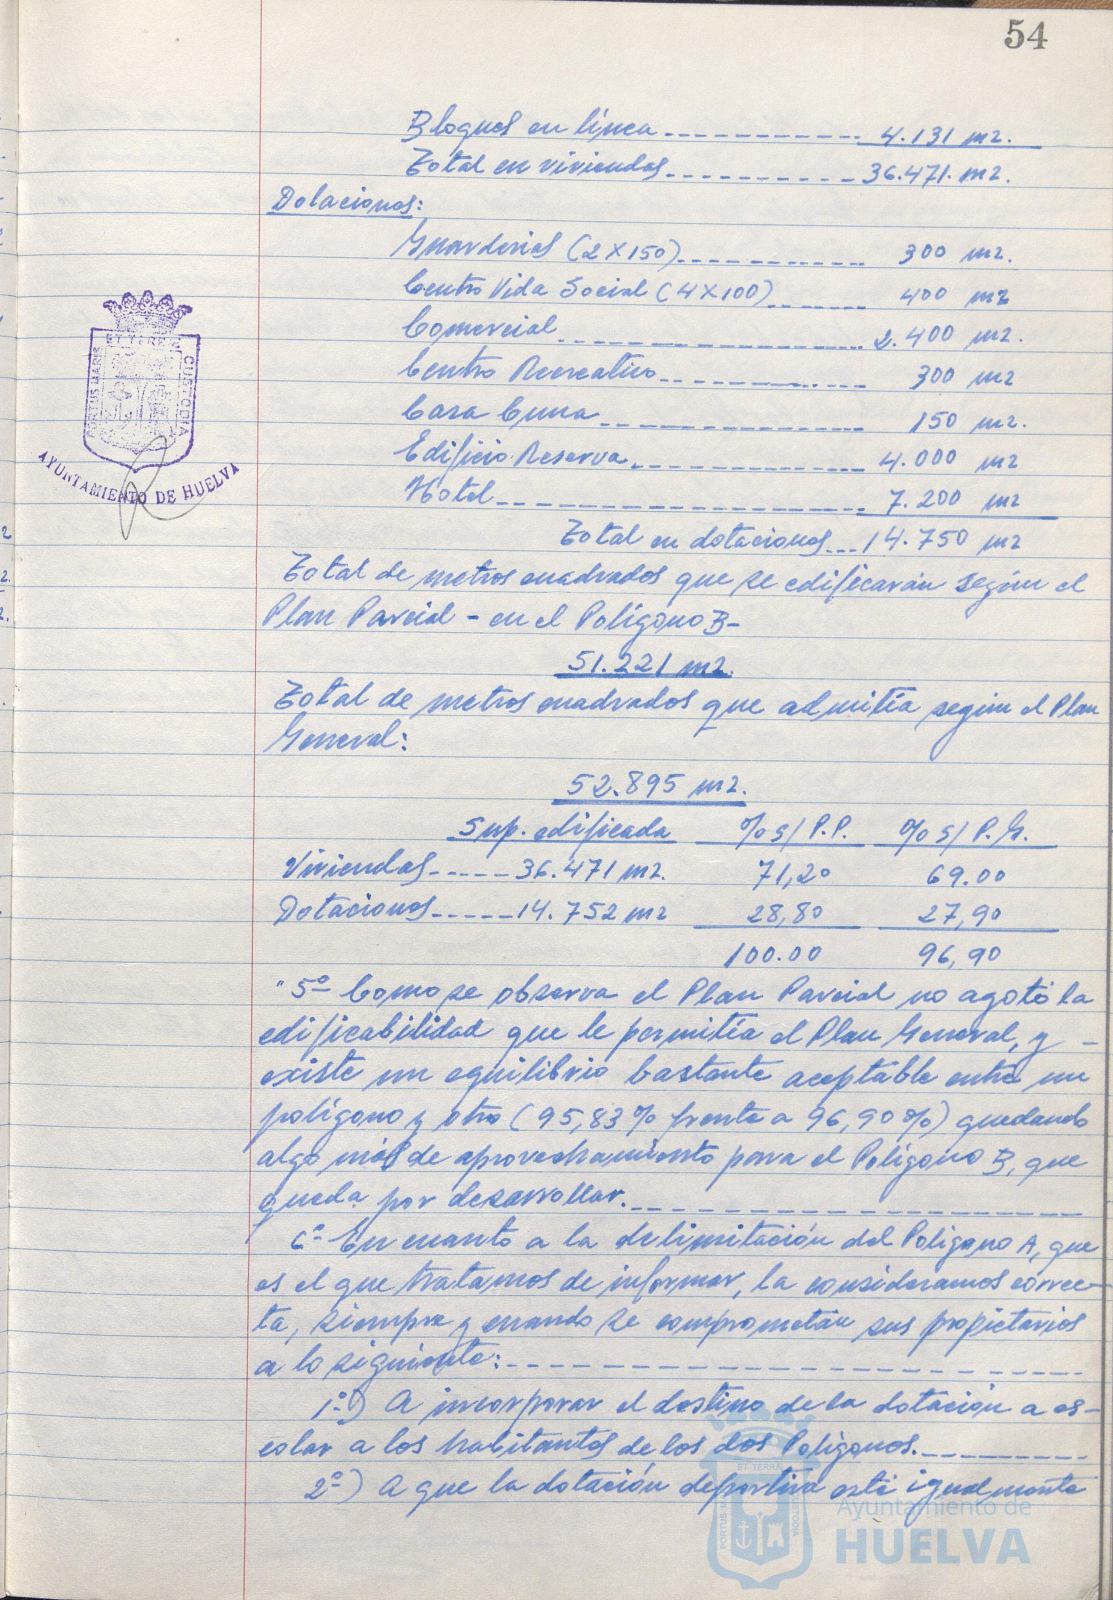 54
Bloques en línea ------------ 4.131 m2.
Total en viviendas ---------- 36.471. m2.
Dotaciones:
Guarderias (2 X 150) ------------ 300 m2.
Centro Vida Social (4 X 100) ------ 400 m2
Comercial -------------------- 2.400 m2.
Centro Recreativo ------------ 300 m2
Casa Cuna ---------------- 150 m2.
Edificio Reserva ------------- 4.000 m2
Hotel -------------------- 7.200 m2
Total en dotaciones --- 14.750 m2
Total de metros cuadrados que se edificarán según el
Plan Parcial - en el Polígono B -
51.221 m2.
Total de metros cuadrados que admitía según el Plan
General:
52.895 m2.
Sup. edificada % s/ P.P. % s/ P.G.
Viviendas ----- 36.471 m2. 71,20 69.00
Dotaciones ----- 14.752 m2 28,80 27,90
100.00 96,90
"5º Como se observa el Plan Parcial no agotó la
edificabilidad que le permitía el Plan General, y -
existe un equilibrio bastante aceptable entre un
polígono y otro (95,83% frente a 96,90%) quedando
algo más de aprovechamiento para el Polígono B, que
queda por desarrollar. ------------------
6º En cuanto a la delimitación del Poligono A, que
es el que tratamos de informar, la consideramos correc-
ta, siempre y cuando se comprometán sus propietarios
a lo siguiente: ------------------------
1º) A incorporar el destino de la dotación a es-
colar a los habitantes de los dos Polígonos. ---------
2º) A que la dotación deportiva esté igualmente
PORTUS MARIS ET TERRE CUSTODIA
AYUNTAMIENTO DE HUELVA
PORTUS MARIS ET TERRÆ CUSTODIA
Ayuntamiento de
HUELVA